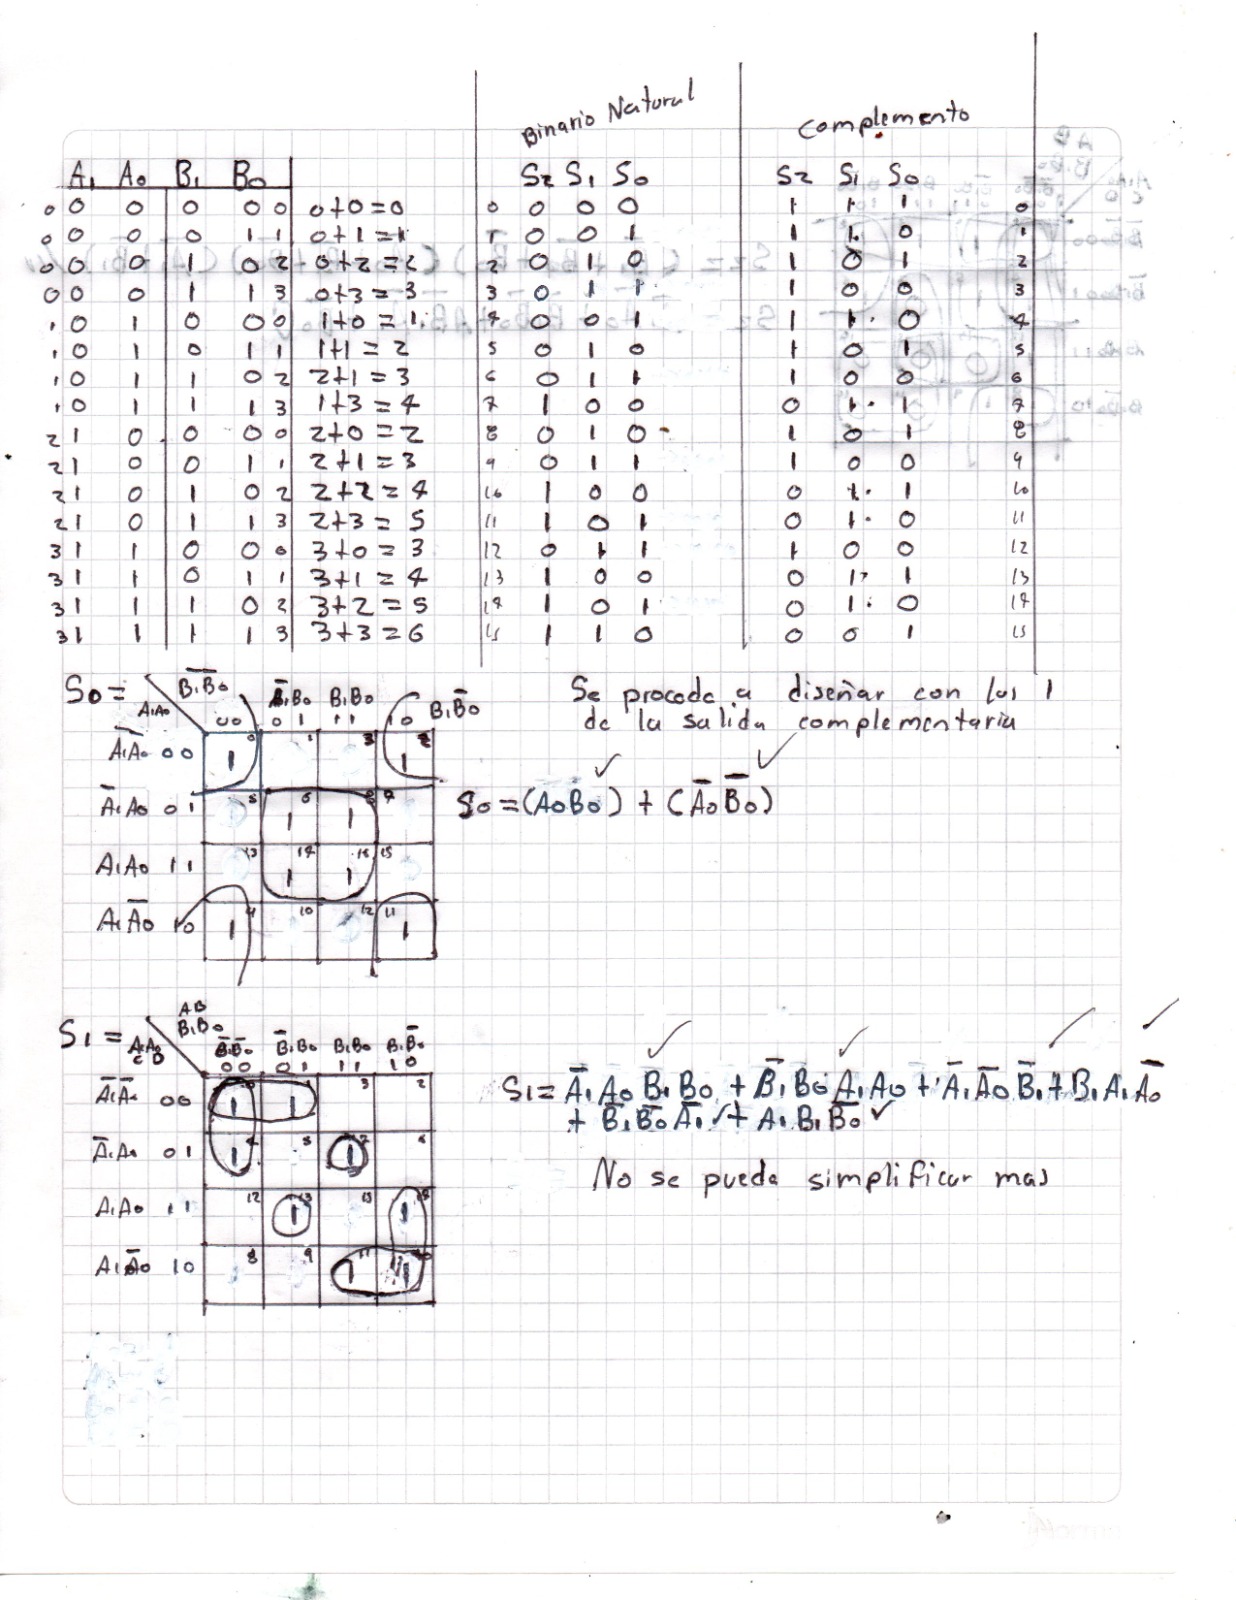 Binario Natural
Complemento
A₁ A₀ B₁ B₀ S₂ S₁ S₀ S₂ S₁ S₀
0 0 0 0 0 0 0+0=0 0 0 0 0 1 1 1 0
0 0 0 0 1 1 0+1=1 1 0 0 1 1 1 0 1
0 0 0 1 0 2 0+2=2 2 0 1 0 1 0 1 2
0 0 0 1 1 3 0+3=3 3 0 1 1 1 0 0 3
1 0 1 0 0 0 1+0=1 4 0 0 1 1 1 0 4
1 0 1 0 1 1 1+1=2 5 0 1 0 1 0 1 5
1 0 1 1 0 2 2+1=3 6 0 1 1 1 0 0 6
1 0 1 1 1 3 1+3=4 7 1 0 0 0 1 1 7
2 1 0 0 0 0 2+0=2 8 0 1 0 1 0 1 8
2 1 0 0 1 1 2+1=3 9 0 1 1 1 0 0 9
2 1 0 1 0 2 2+2=4 10 1 0 0 0 1 1 10
2 1 0 1 1 3 2+3=5 11 1 0 1 0 1 0 11
3 1 1 0 0 0 3+0=3 12 0 1 1 1 0 0 12
3 1 1 0 1 1 3+1=4 13 1 0 0 0 1 1 13
3 1 1 1 0 2 3+2=5 14 1 0 1 0 1 0 14
3 1 1 1 1 3 3+3=6 15 1 1 0 0 0 1 15
S₀= A₁A₀ B̅₁B̅₀ B̅₁B₀ B₁B₀ B₁B̅₀
00 01 11 10
Se procede a diseñar con los 1
de la salida complementaria
A̅₁A̅₀ 00 0 1 1 3 2 1
A̅₁A₀ 01 5 6 1 8 1 7
S₀=(A₀B₀)+(A̅₀B̅₀)
A₁A₀ 11 13 14 1 16 1 15
A₁A̅₀ 10 9 1 10 12 11 1
AB
S₁= A₁A₀ CD B₁B₀ B̅₁B̅₀ B̅₁B₀ B₁B₀ B₁B̅₀
00 01 11 10
A̅₁A̅₀ 00 1 1 3 2
A̅₁A₀ 01 4 1 5 7 1 6
A₁A₀ 11 12 13 1 15 1
A₁A̅₀ 10 8 9 11 1 10 1
S₁= A̅₁A₀B₁B₀ + B̅₁B₀A₁A₀ + A̅₁A̅₀B̅₁ + B₁A₁A̅₀
+ B̅₁B̅₀A̅₁ + A₁B₁B̅₀
No se puede simplificar mas